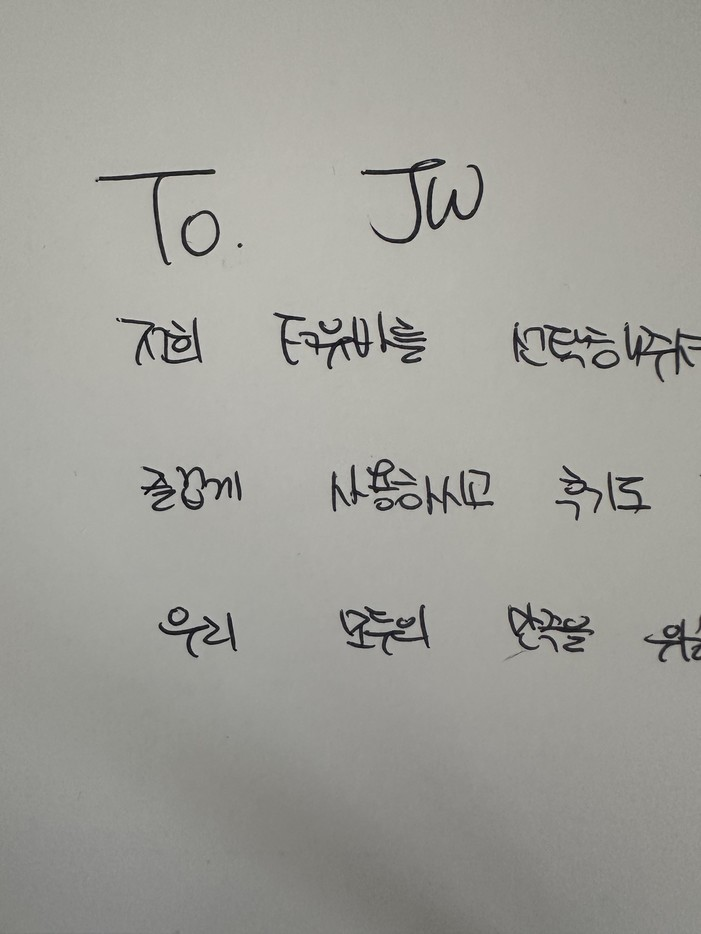 To. JW
저희 타쿠미를 선택해주셔
즐겁게 사용하시고 후기도
우리 모두의 만족을 위